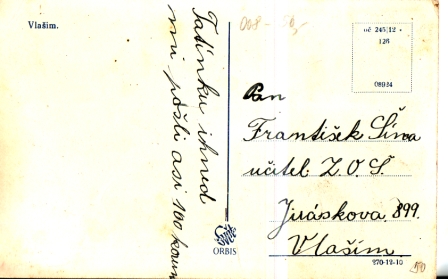 Vlašim.
Tatínku ihned
mi pošli asi 100 korun
008 -
uč 245|12 •
126
08934
Pan
František Šíva
učitel Z. O. Š.
Jiráskova 899.
Vlašim
ORBIS
270-12-10